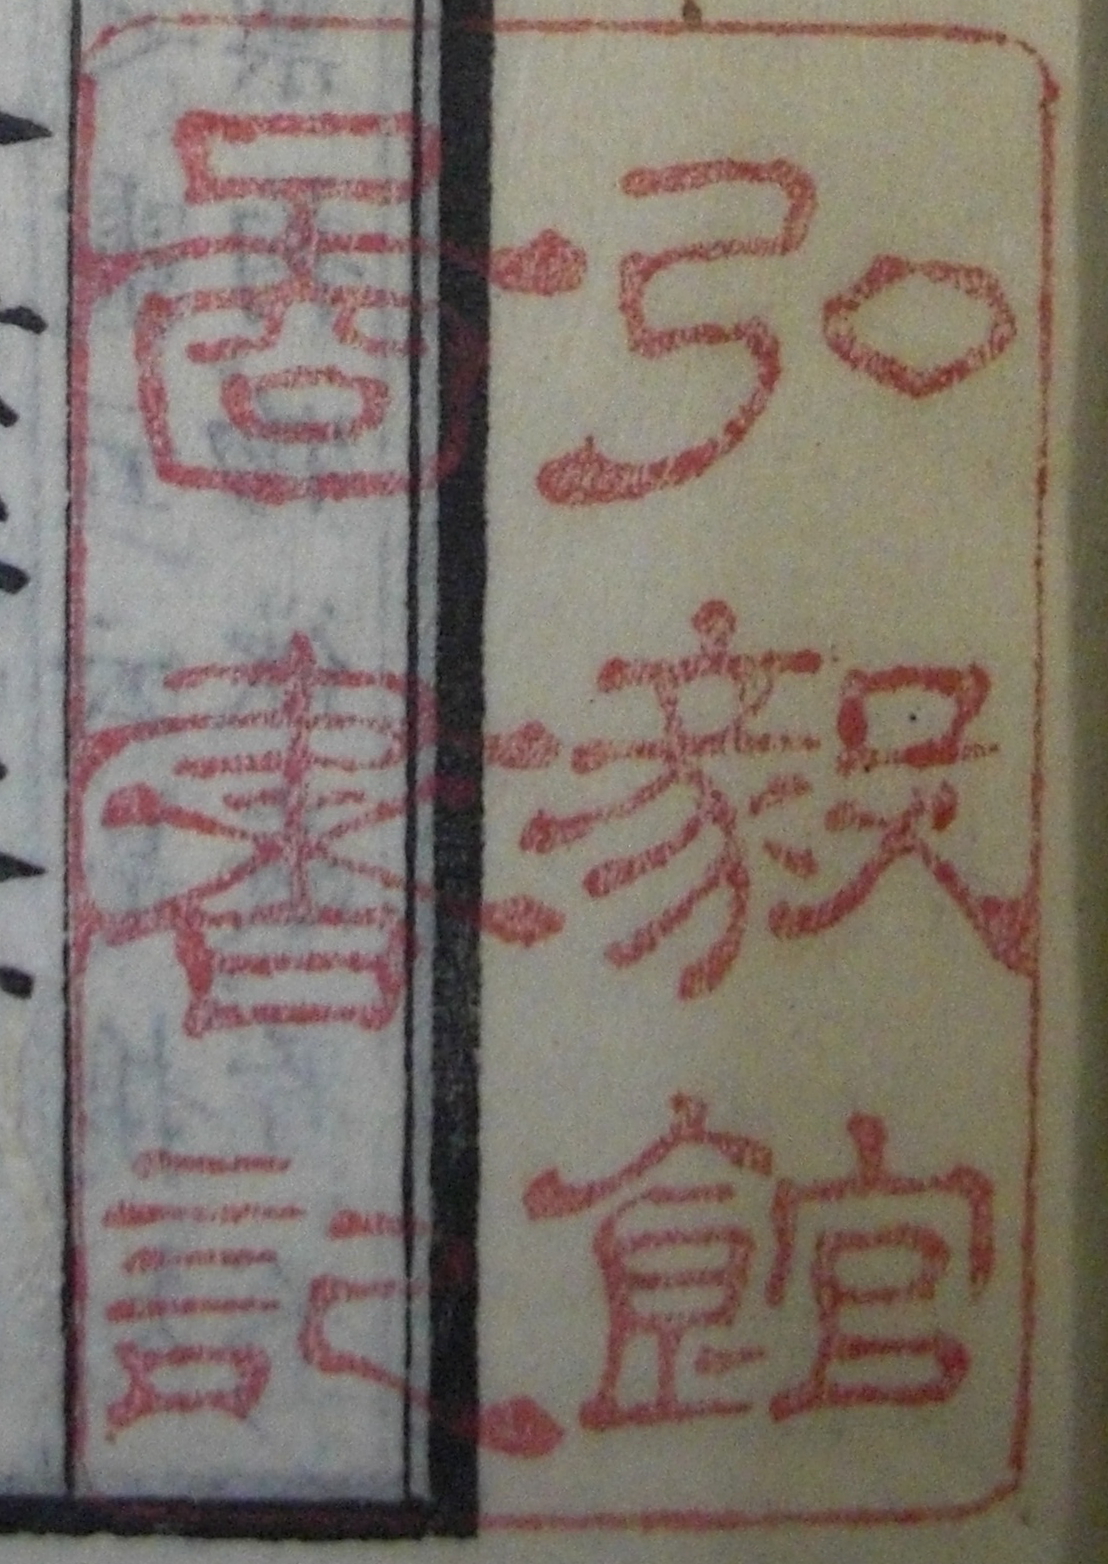 弘毅館
圖書記